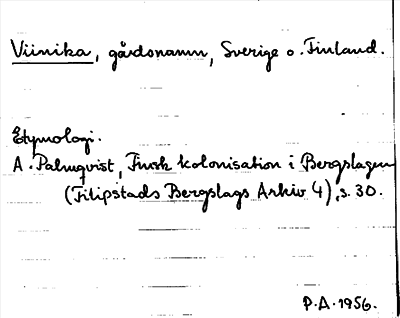 Viinika, gårdsnamn, Sverige o. Finland.
Etymologi.
A. Palmqvist, Finsk kolonisation i Bergslagen
(Filipstads Bergslags Arkiv 4), s. 30.
P.A. 1956.